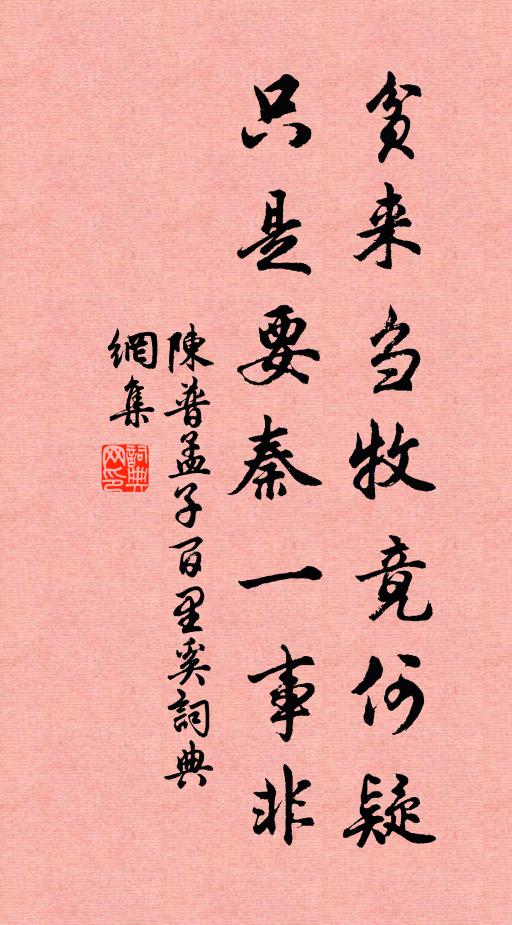 贫来刍牧竟何疑
只是要秦一事非
陳普孟子百里奚詞典
網集
詞典网印